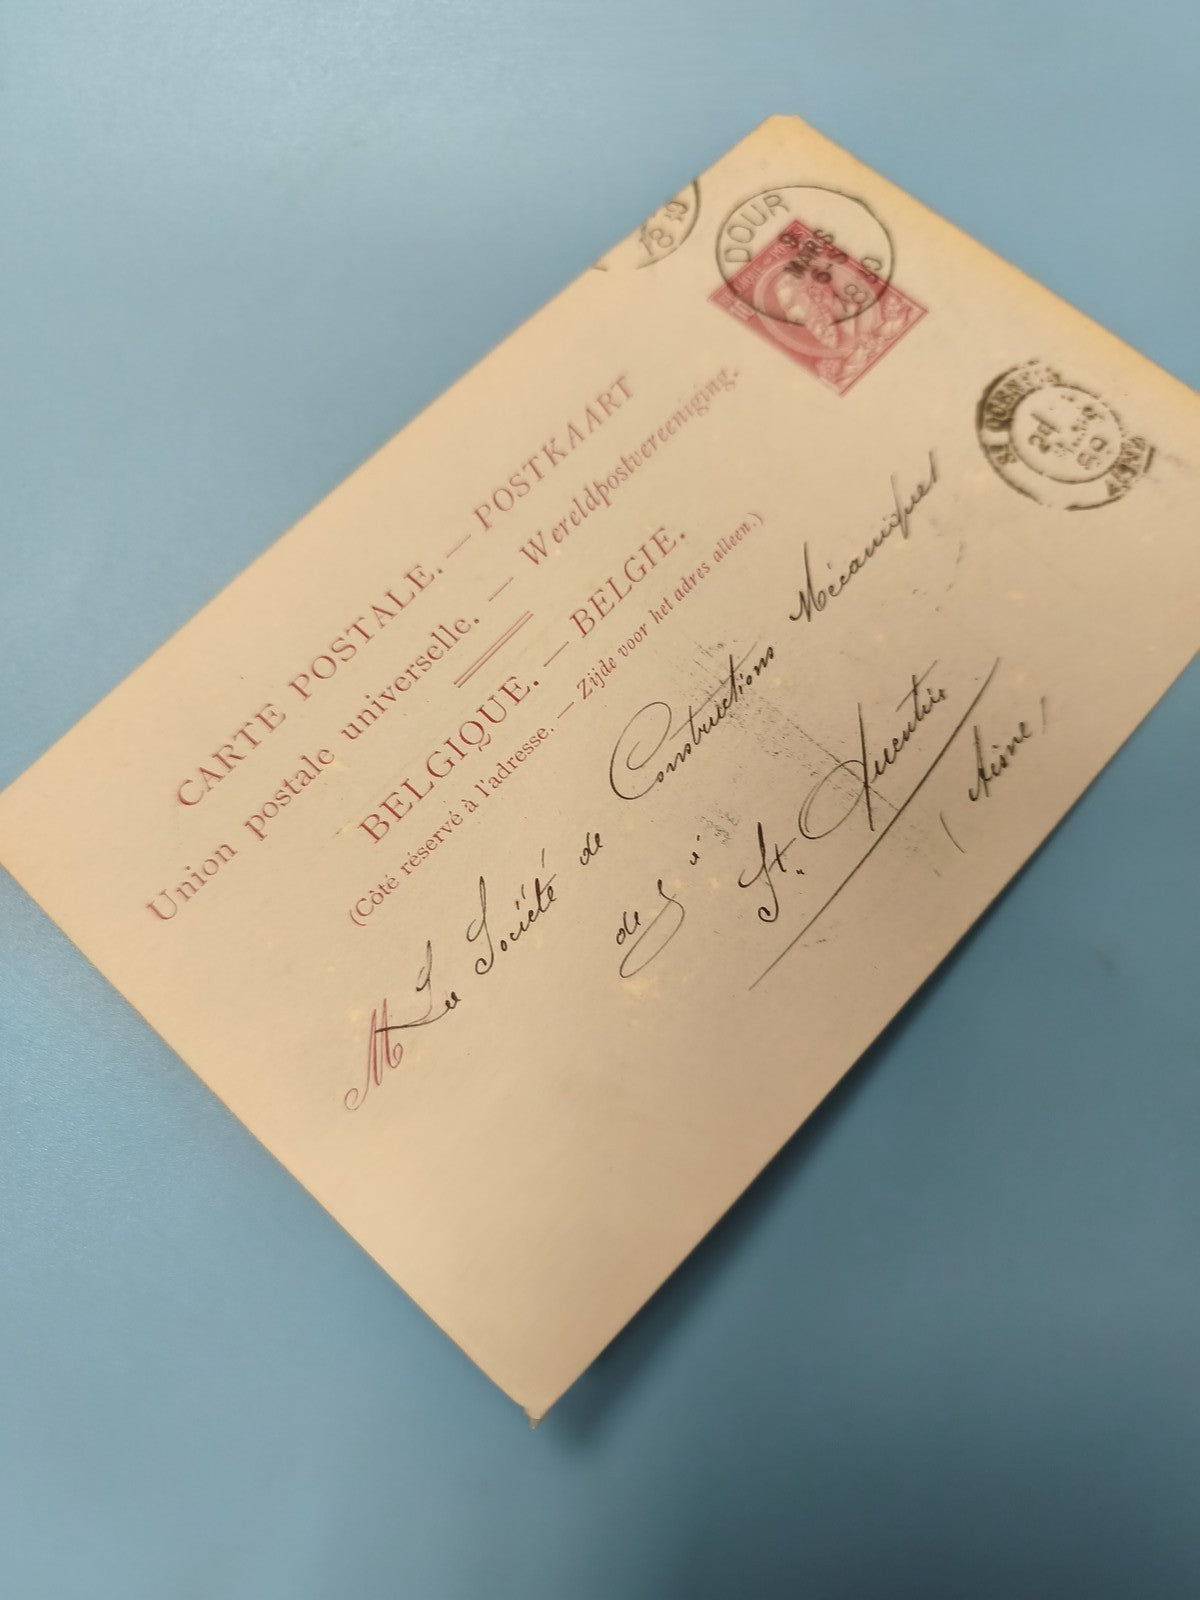 CARTE POSTALE. — POSTKAART
Union postale universelle. — Wereldpostvereeniging.
BELGIQUE. — BELGIE.
(Côté réservé à l'adresse. — Zijde voor het adres alleen.)
M La Société de Constructions Mécaniques
de
à
St. Quentin
(Aisne)
DOUR
MARS
ST QUENTIN
AISNE